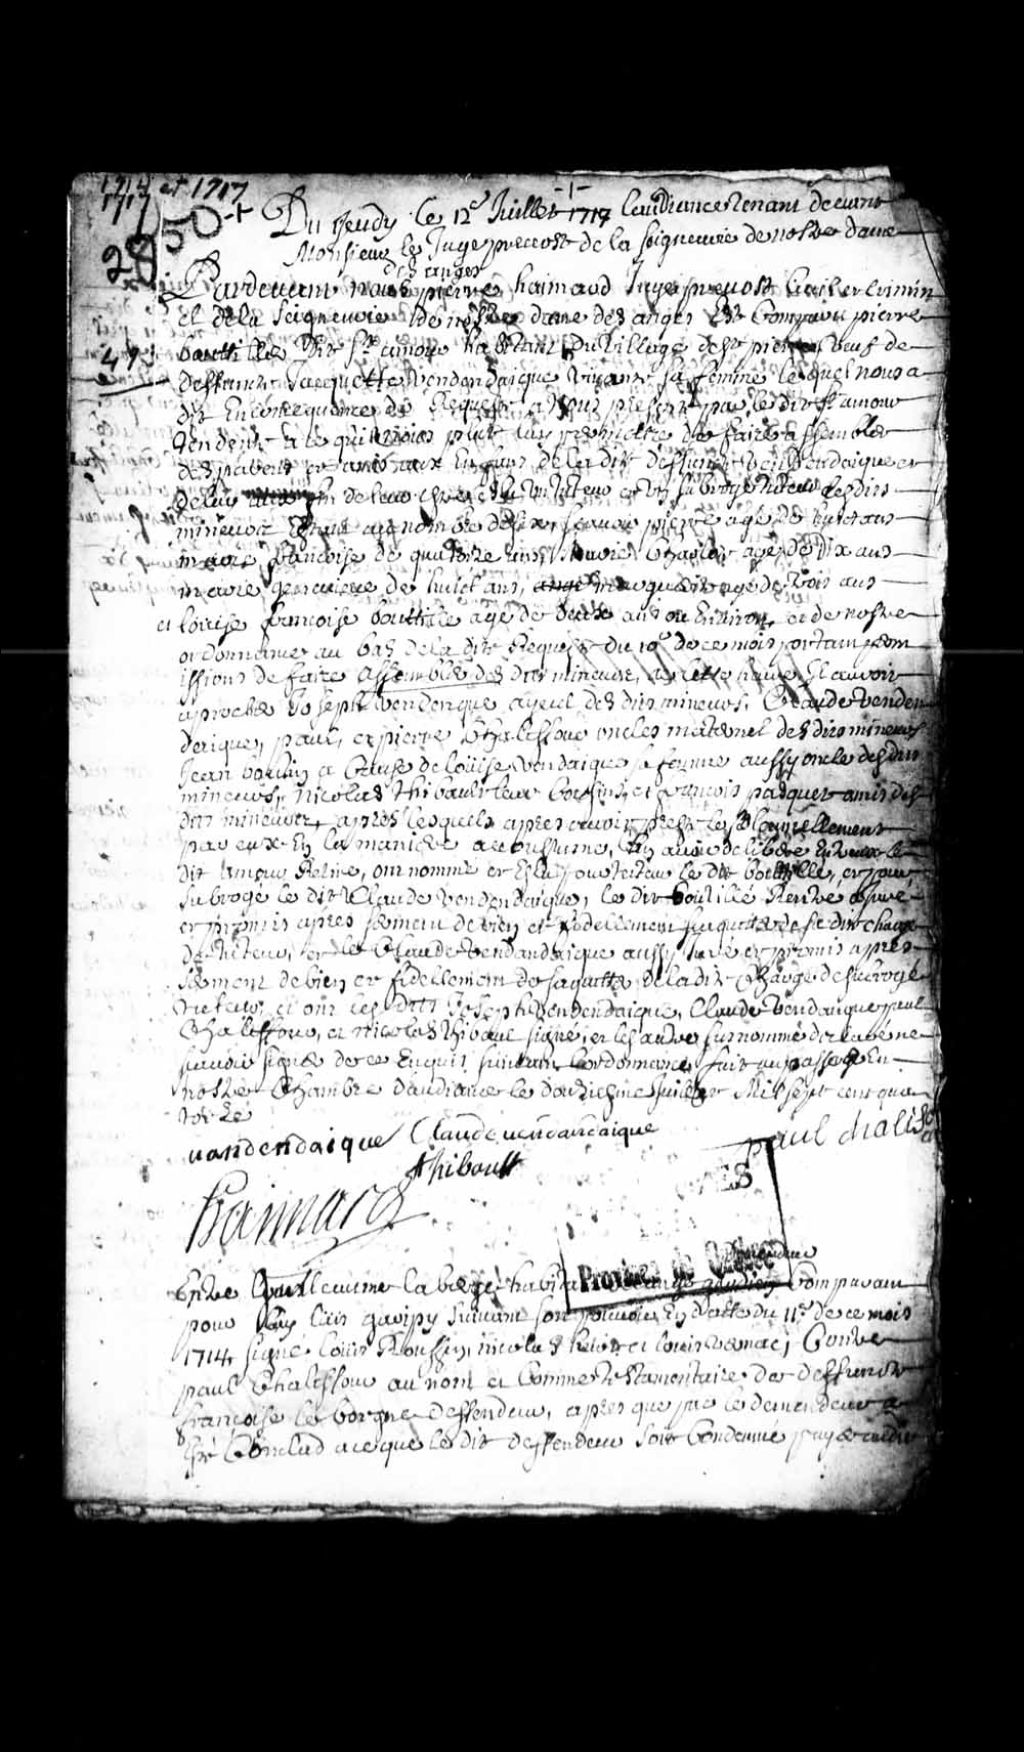 1714 et 1717
1717
50
28
47
Du Jeudy le 12e Juillet 1714 laudiance tenant devant
Monsieur le Juge prevost de la seigneurie de nostre dame
des anges
Pardevant nous pierre haimard Juge prevost Civil et Crimin
el de la seigneurie de nostre dame des anges Est Comparu pierre
bouttillé dit St amour habitant du village de St pierre veuf de
deffunte Jacquette vendandaique vivante sa femme lequel nous a
dit En consequence de Requeste a nous presenté par le dit St amour
tendente a ce qu'il nous plut luy permettre de faire assembler
des parents et amis aux Enfans de la dite deffunte vendendaique et
de luy de leur Un tuteur et Un subrogé tuteur lesdits
mineurs Estant au nombre de six, scavoir pierre agé de
marie francoise de quatorze ans, Charles agé de dix ans
marie genevieve de huict ans, agé de trois ans
et louise francoise bouttillé agé de ans ou Environ, et de nostre
ordonnance au bas de la dite Requeste du 10e de ce mois portant perm
issions de faire assemblée des dits mineurs,
aproché Joseph vendenque ayeul des dits mineurs, Claude venden
daique, paul, et pierre Chalifour oncles maternel des dits mineurs
Jean a Cause de louise vendaique sa femme aussy oncle des dits
mineurs, Nicolas thibault leur Cousins, et francois pasquet amis des
dits mineurs, apres lesquels apres avoir presté le
par eux En la maniere accoustumé, En avoir deliberé Entreux le
dit amour Retiré, ont nommé et Eslu pour tuteur le dit bouttillé, et pour
subrogé le dit Claude vendendaique, le dit boutillié Rentré a juré
et promis apres serment de bien et fidellement saquitter de sa dite charge
de tuteur, et le Claude vendandaique aussy juré et promis apres
serment de bien et fidellement de saquitter de la dite Charge de subrogé
tuteur, et ont les dits Joseph vendendaique, Claude vendaique paul
Chalifour, et Nicolas thibaul signé, et les autre surnommé declaré ne
scavoir signé de ce Enquis suivant lordonnance, fait et passé En
nostre Chambre daudiance le douzieme Juillet Mil sept cent qua
torze
vandendaique Claude vandandaique paul chalifo
thibault
haimard
Province de Québec
demandeur
Entre Guillemme la berge habita Comparant
pour luy suivant son pouvoir En datte du 11e de ce mois
1714 signé louis Roussin, nicolas et louis Contre
paul Chalifour au nom et Comme testamentaire de deffuncte
francoise le borgne deffendeur, apres que par le demendeur a
Esté Conclud a ce que le dit deffendeur soit Condemné